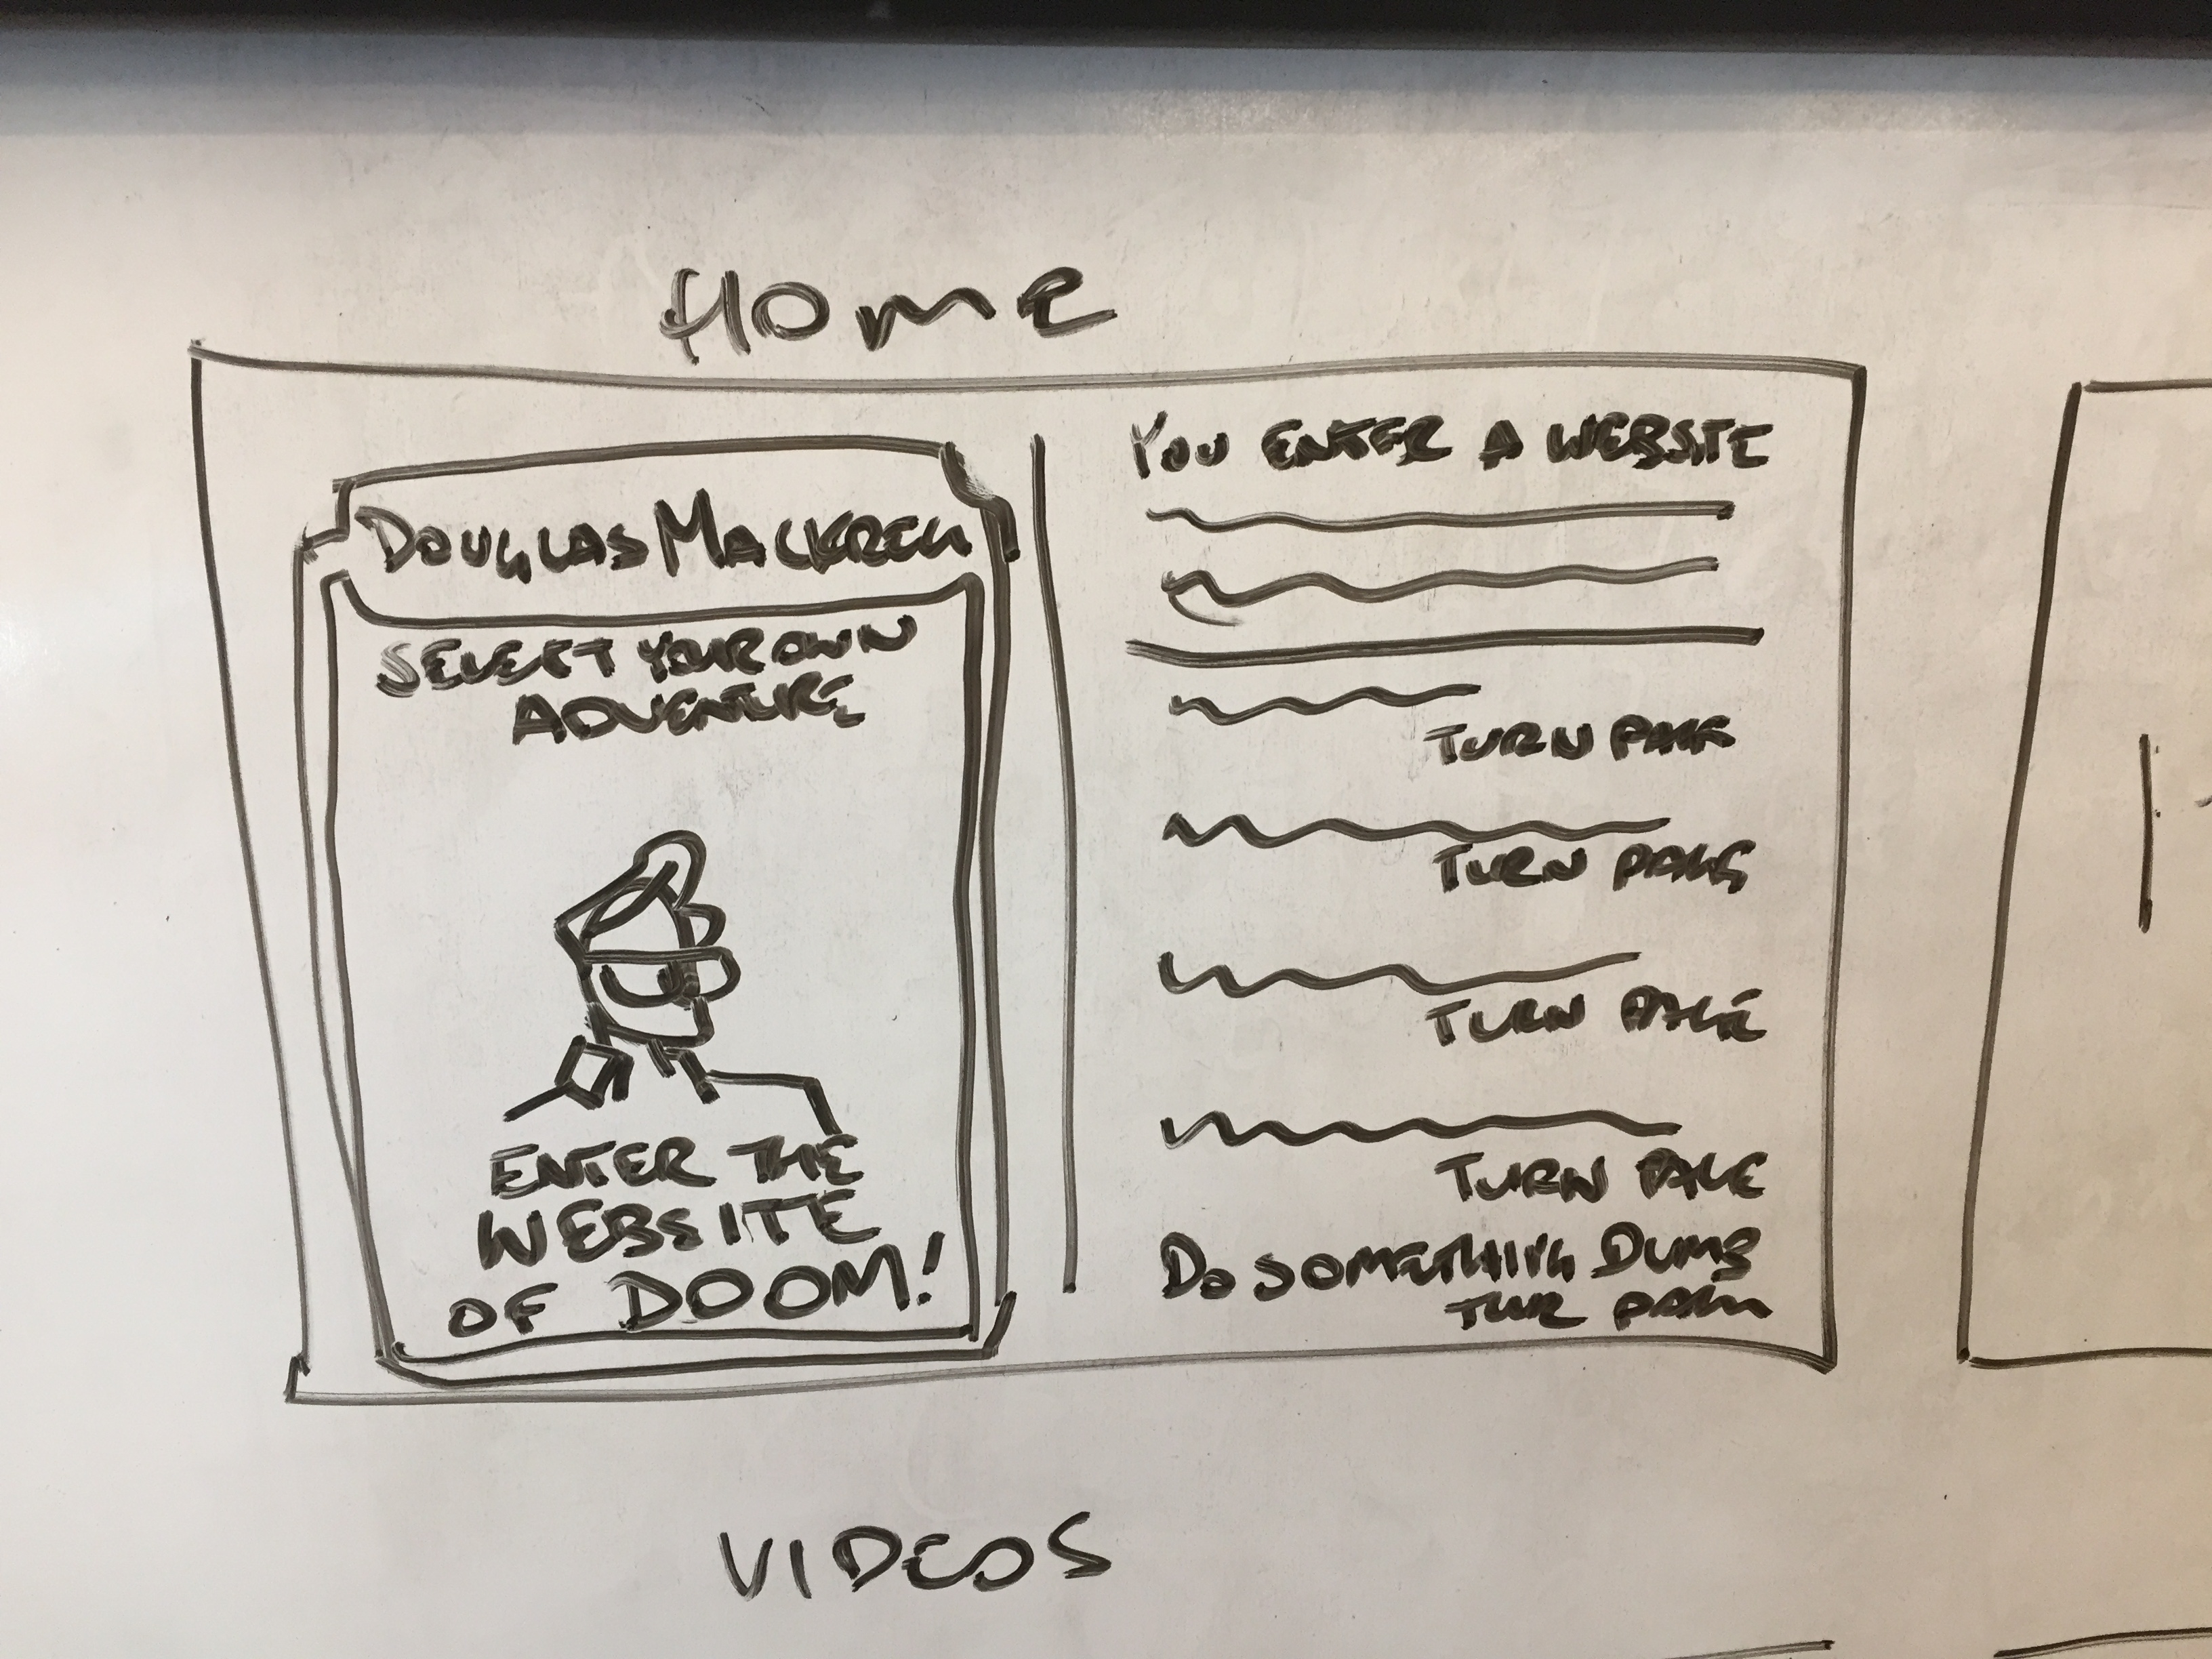 HOME
DOUGLAS MACKREll
SELECT YOUR OWN
ADVENTURE
ENTER THE
WEBSITE
OF DOOM!
YOU ENTER A WEBSITE
TURN PAGE
TURN PAGE
TURN PAGE
TURN PAGE
DO SOMETHING DUMB
VIDEOS